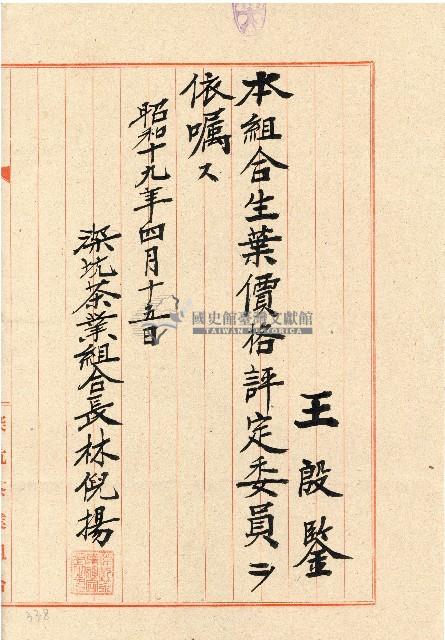 王殷鑒
本組合生葉價格評定委員ニ
依嘱ス
昭和十九年四月十五日
深坑茶業組合長林倪揚
國史館臺灣文獻館
TAIWAN HISTORICA
338